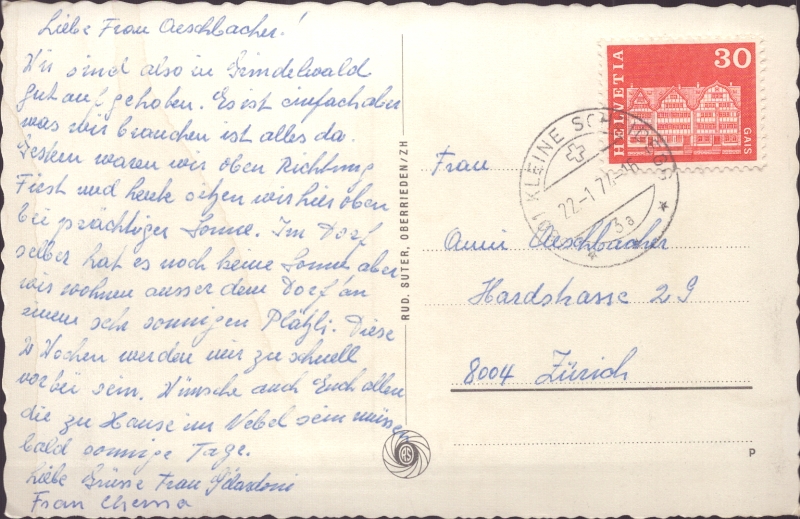 Liebe Frau Aeschbacher!
Wir sind also in Grindelwald
gut aufgehoben. Es ist einfach aber
was wir brauchen ist alles da.
Gestern waren wir oben Richtung
First und heute sitzen wir hier oben
bei prächtiger Sonne. Im Dorf
selber hat es noch keine Sonne aber
wir wohnen ausser dem Dorf an
einem sehr sonnigen Plätzli. Diese
2 Wochen werden nur zu schnell
vorbei sein. Wünsche auch Euch allen
die zu Hause im Nebel sein müssen
bald sonnige Tage.
Liebe Grüsse Frau
Frau
RUD. SUTER, OBERRIEDEN/ZH
HELVETIA
30
GAIS
KLEINE SCHEIDEGG
22-1.7
3a
Frau
Anni Aeschbacher
Hardstrasse 29
8004 Zürich
P